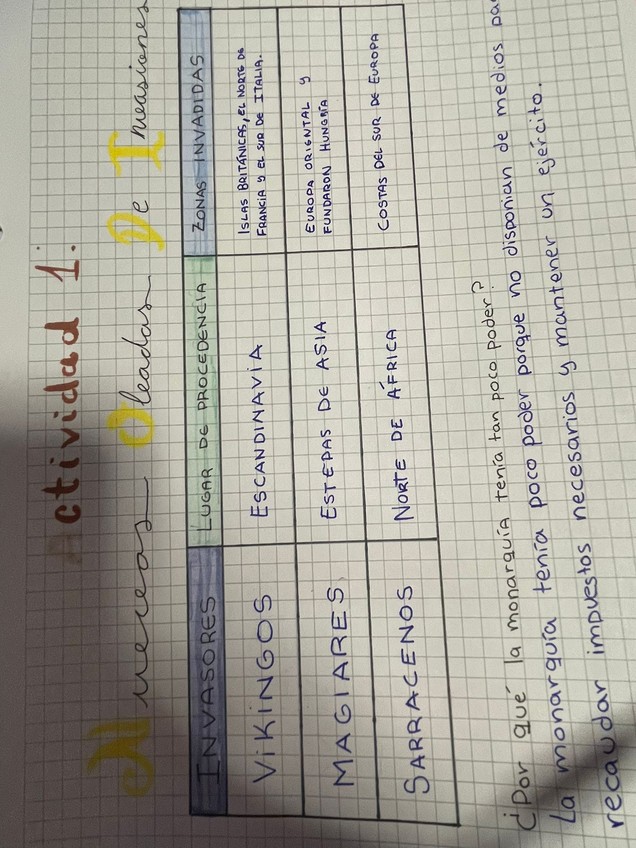 Actividad 1:
Nuevas Oleadas De Invasiones
INVASORES LUGAR DE PROCEDENCIA ZONAS INVADIDAS
VIKINGOS ESCANDINAVIA ISLAS BRITÁNICAS, EL NORTE DE
FRANCIA Y EL SUR DE ITALIA.
MAGIARES ESTEPAS DE ASIA EUROPA ORIENTAL Y
FUNDARON HUNGRÍA
SARRACENOS NORTE DE ÁFRICA COSTAS DEL SUR DE EUROPA
¿Por qué la monarquía tenía tan poco poder?
La monarquía tenía poco poder porque no disponian de medios
recaudar impuestos necesarios y mantener un ejército.